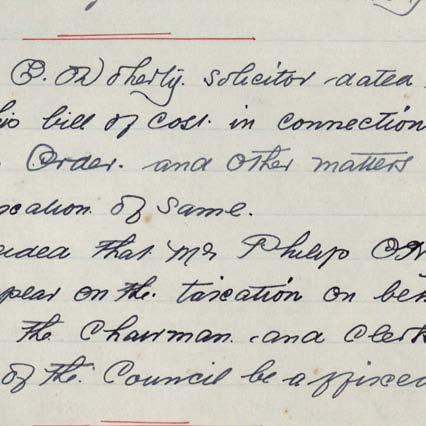 P. O'Doherty. Solicitor dated
his bill of Cost. in connection
Order. and other matters
taxation of Same.
that Mr Philip O
appear on the. taxation on
the Chairman. and Clerk
of the. Council be affixed